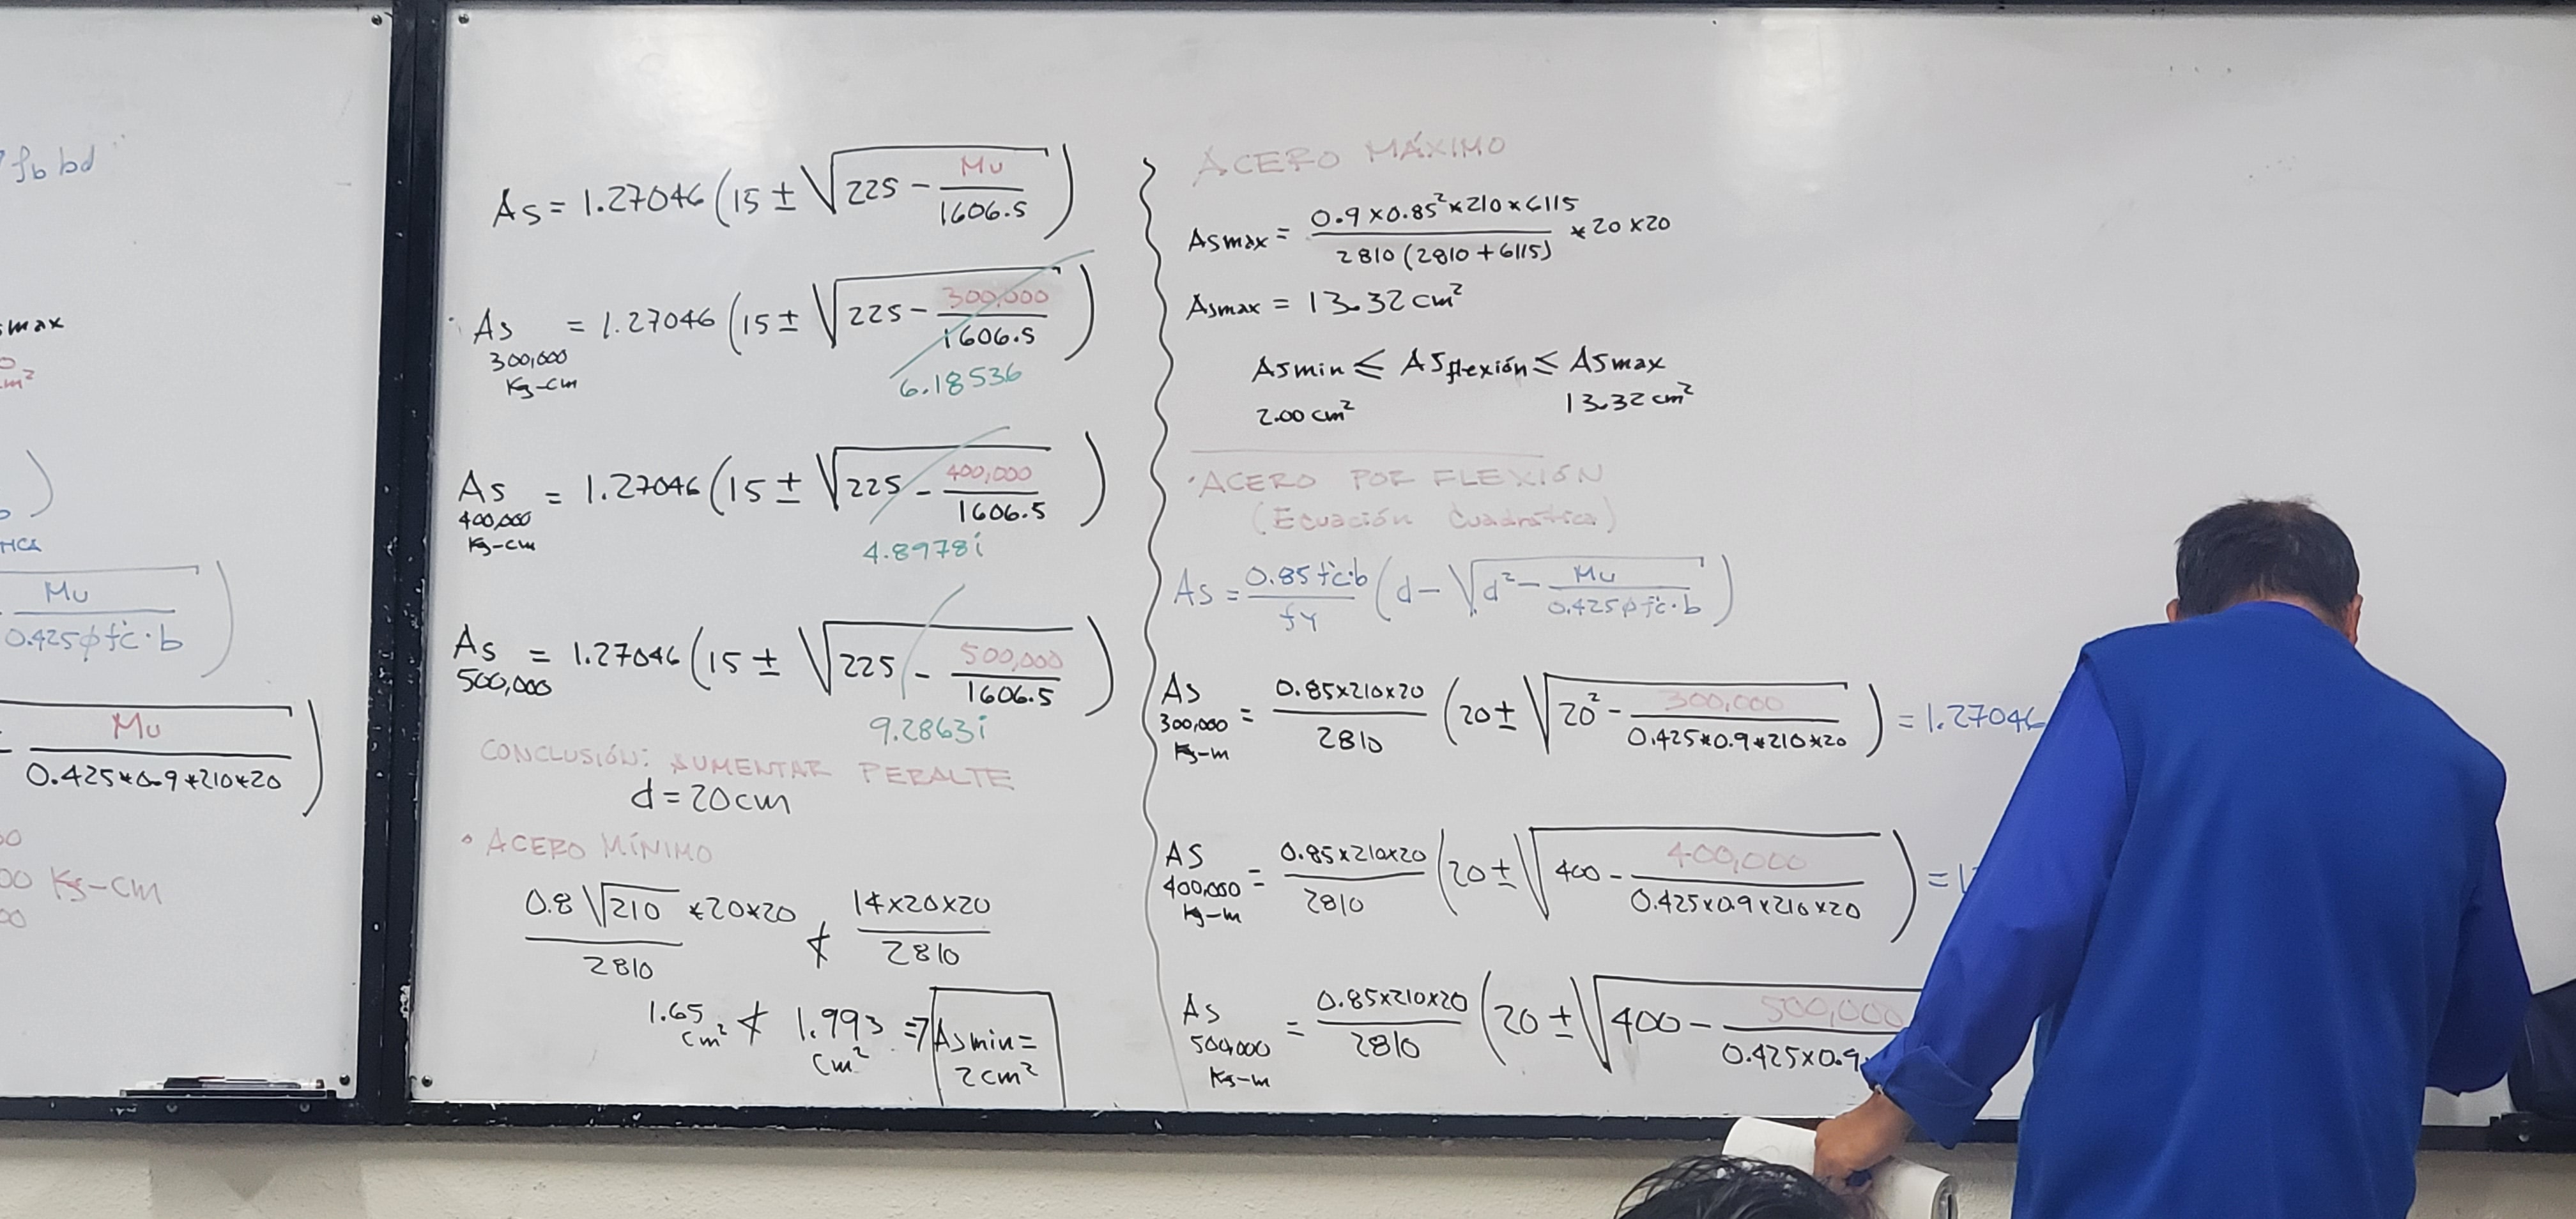 fb bd
smax
cm²
Mu
0.425φf'c·b
Mu
0.425*0.9*210*20
00 Kg-cm
As = 1.27046 (15 ± √225 - Mu/1606.5)
As 300,000 Kg-cm = 1.27046 (15 ± √225 - 300,000/1606.5)
6.18536
As 400,000 Kg-cm = 1.27046 (15 ± √225 - 400,000/1606.5)
4.8978i
As 500,000 = 1.27046 (15 ± √225 - 500,000/1606.5)
9.2863i
CONCLUSIÓN: AUMENTAR PERALTE
d = 20cm
• ACERO MÍNIMO
0.8√210/2810 *20*20 ≮ 14x20x20/2810
1.65 cm² ≮ 1.993 cm² => Asmin = 2cm²
ACERO MÁXIMO
Asmax = 0.9x0.85²x210x6115/2810(2810+6115) *20x20
Asmax = 13.32 cm²
Asmin ≤ Asflexión ≤ Asmax
2.00 cm² 13.32 cm²
• ACERO POR FLEXIÓN
(Ecuación Cuadrática)
As = 0.85f'c·b/fy (d - √d² - Mu/0.425φf'c·b)
As 300,000 Kg-m = 0.85x210x20/2810 (20 ± √20² - 300,000/0.425*0.9*210*20) = 1.27046
As 400,000 Kg-m = 0.85x210x20/2810 (20 ± √400 - 400,000/0.425x0.9x210x20) = 1
As 500,000 Kg-m = 0.85x210x20/2810 (20 ± √400 - 500,000/0.425x0.9